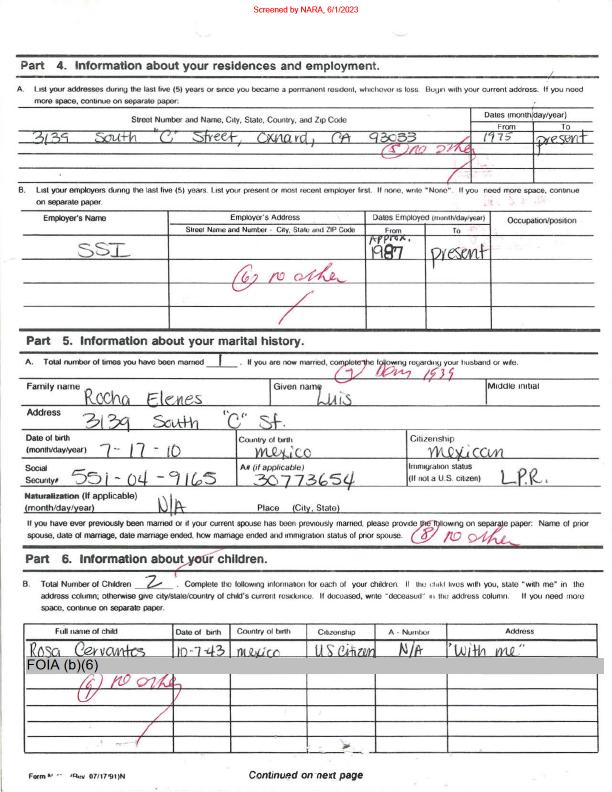 Screened by NARA, 6/1/2023
Part 4. Information about your residences and employment.
A. List your addresses during the last five (5) years or since you became a permanent resident, whichever is less. Begin with your current address. If you need
more space, continue on separate paper:
Street Number and Name, City, State, Country, and Zip Code
Dates (month/day/year)
From To
3139 South "C" Street, Oxnard, CA 93033 1975 present
(5) no other
B. List your employers during the last five (5) years. List your present or most recent employer first. If none, write "None". If you need more space, continue
on separate paper.
Employer's Name Employer's Address Dates Employed (month/day/year) Occupation/position
Street Name and Number - City, State and ZIP Code From To
SSI Approx. 1987 present
(6) no other
Part 5. Information about your marital history.
A. Total number of times you have been married 1 . If you are now married, complete the following regarding your husband or wife.
(7) 1939
Family name Rocha Elenes Given name Luis Middle initial
Address 3139 South "C" St.
Date of birth (month/day/year) 7-17-10 Country of birth mexico Citizenship mexican
Social Security# 551-04-9165 A# (if applicable) 30773654 Immigration status (If not a U.S. citizen) L.P.R.
Naturalization (If applicable)
(month/day/year) N/A Place (City, State)
If you have ever previously been married or if your current spouse has been previously married, please provide the following on separate paper: Name of prior
spouse, date of marriage, date marriage ended, how marriage ended and immigration status of prior spouse. (8) no other
Part 6. Information about your children.
B. Total Number of Children 2 . Complete the following information for each of your children. If the child lives with you, state "with me" in the
address column; otherwise give city/state/country of child's current residence. If deceased, write "deceased" in the address column. If you need more
space, continue on separate paper.
Full name of child Date of birth Country of birth Citizenship A - Number Address
Rosa Cervantes 10-7-43 mexico US Citizen N/A "With me"
FOIA (b)(6)
(9) no other
Form (Rev 07/17/91)N Continued on next page